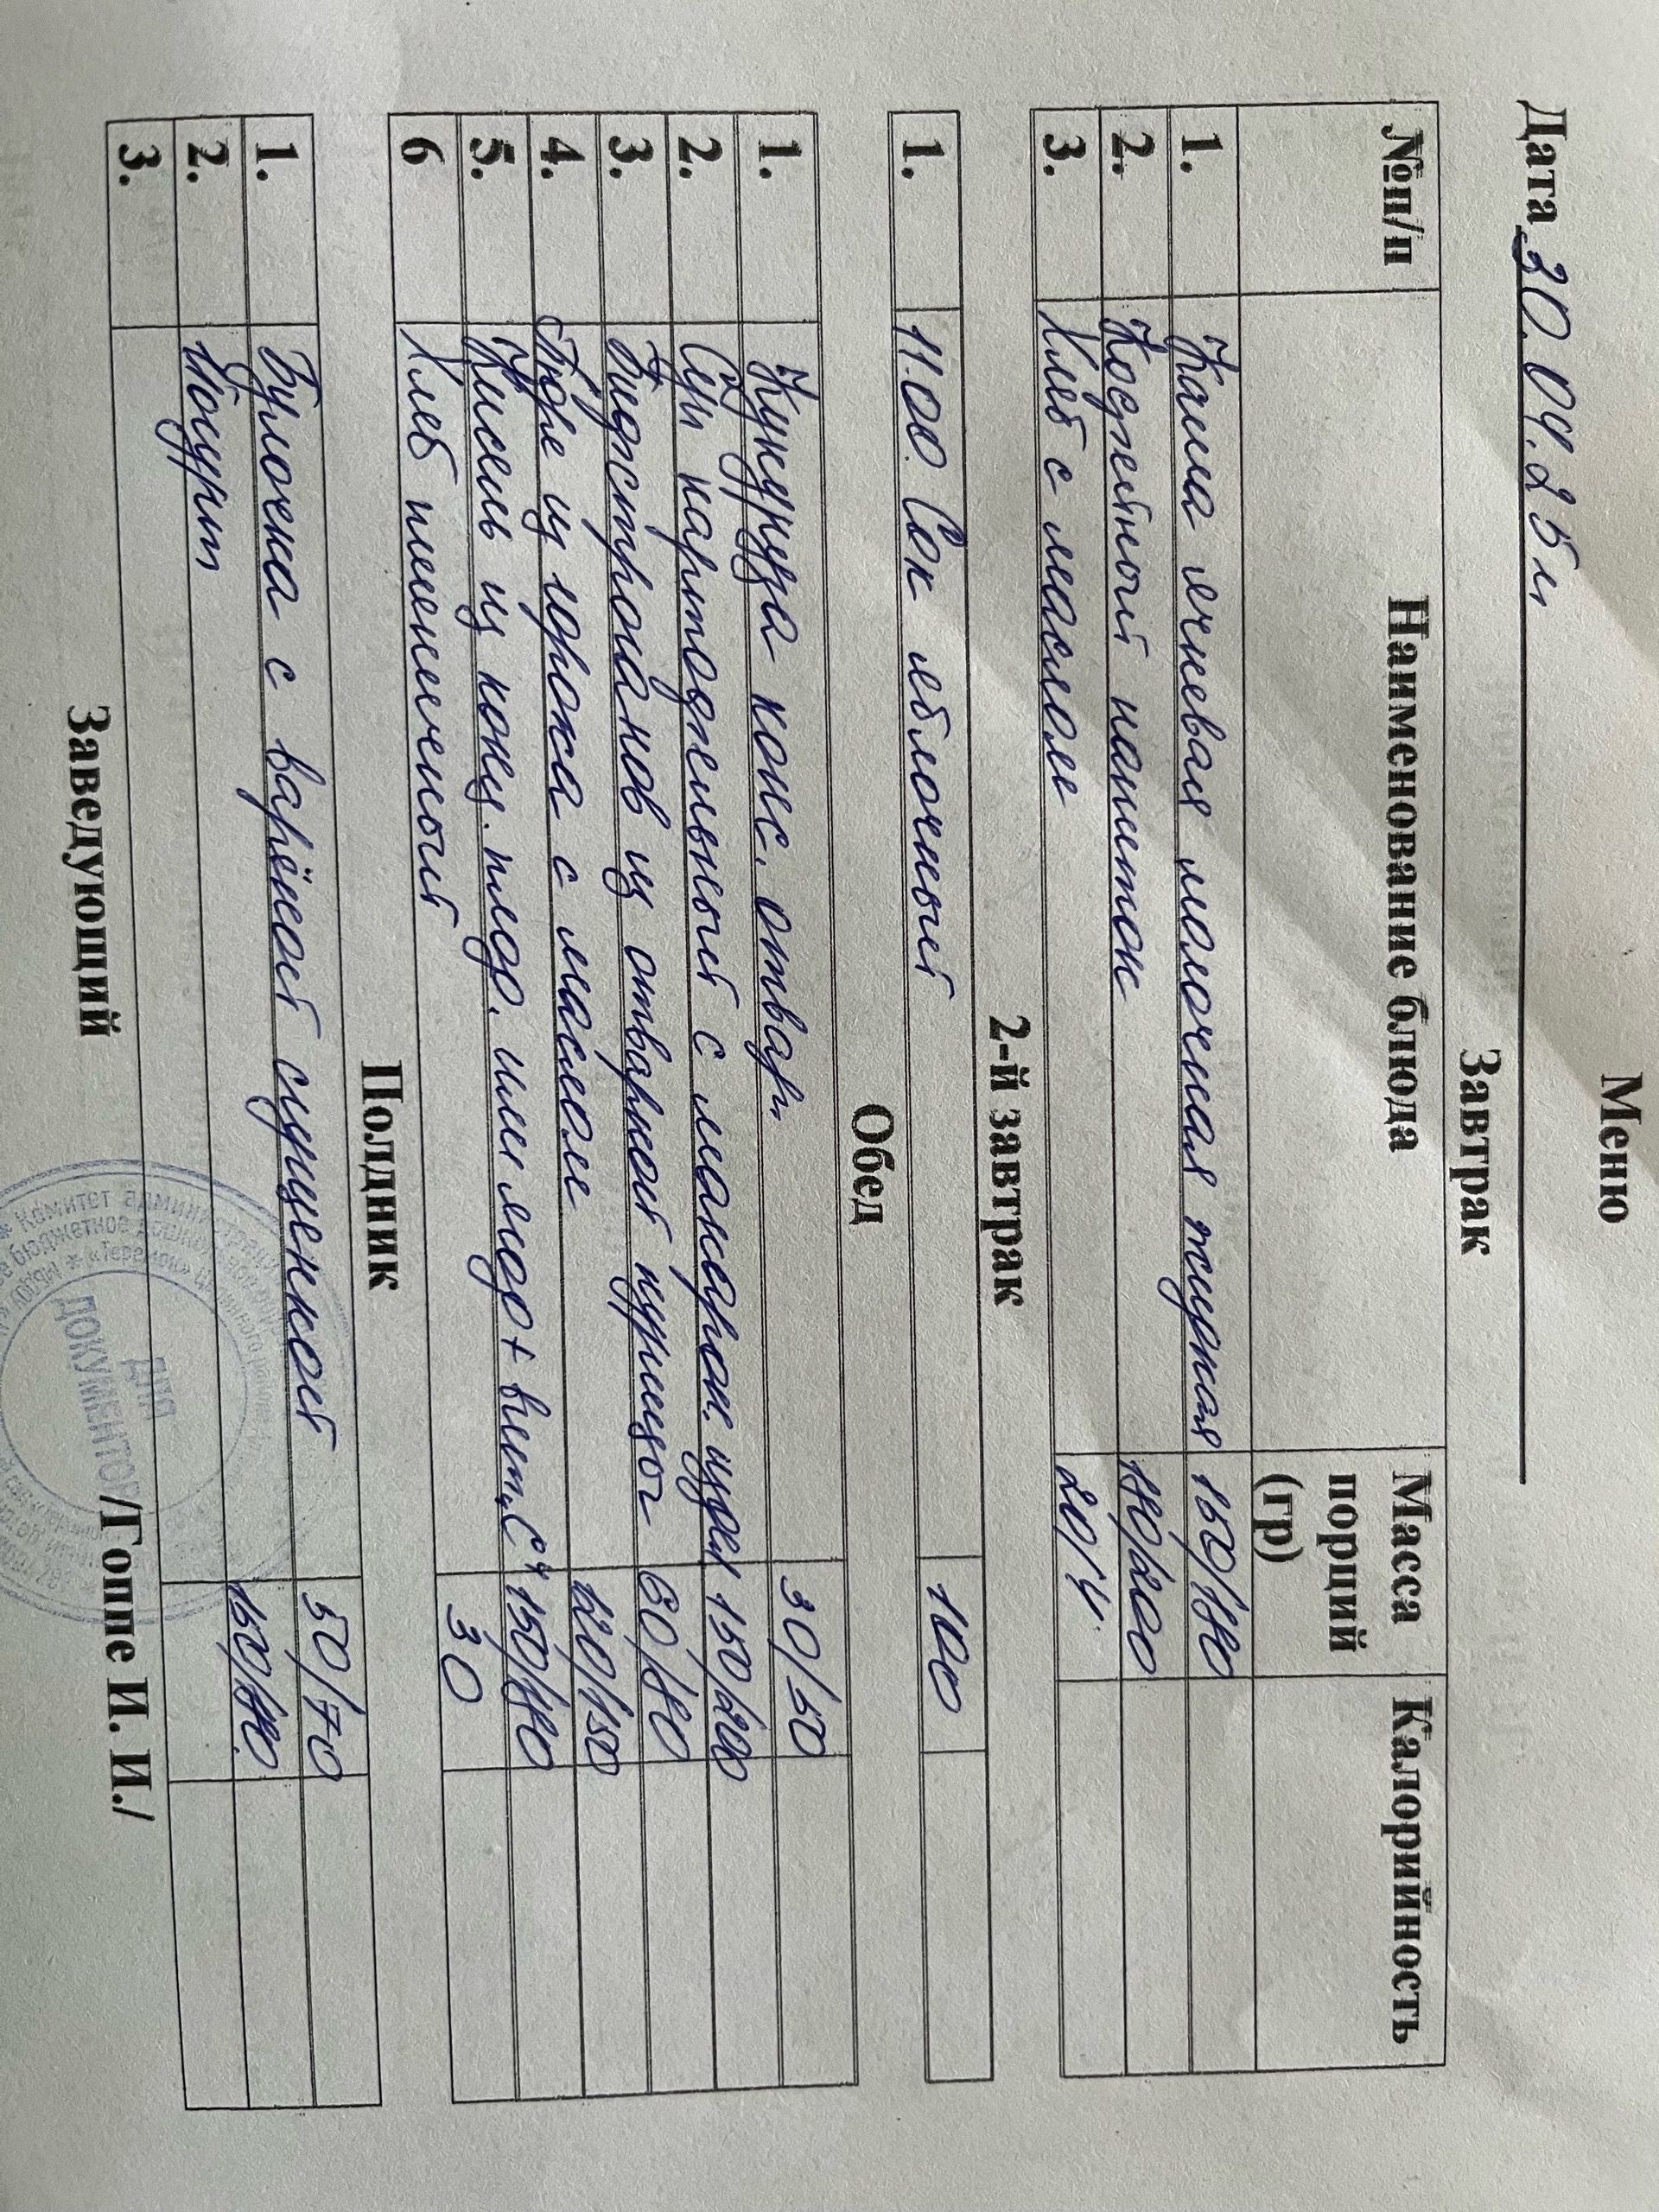 Меню
Дата 30.04.25г
Завтрак
№п/п Наименование блюда Масса порций (гр) Калорийность
1. Каша ячневая молочная жидкая 150/180
2. Кофейный напиток 180/200
3. Хлеб с маслом 20/4
2-й завтрак
1. 11.00. Сок яблочный 100
Обед
1. Кукуруза конс. отвар. 30/50
2. Суп картофельный с макарон. издел 150/200
3. Бифстроганов из отварной курицы 60/80
4. Пюре из гороха с маслом 120/150
5. Кисель из конц. плод. или ягод + вит. "С" 150/180
6 Хлеб пшеничный 30
Полдник
1. Булочка с варёной сгущенкой 50/70
2. Йогурт 150/180.
3.
Заведующий /Гоппе И. И./
Для
ДОКУМЕНТОВ